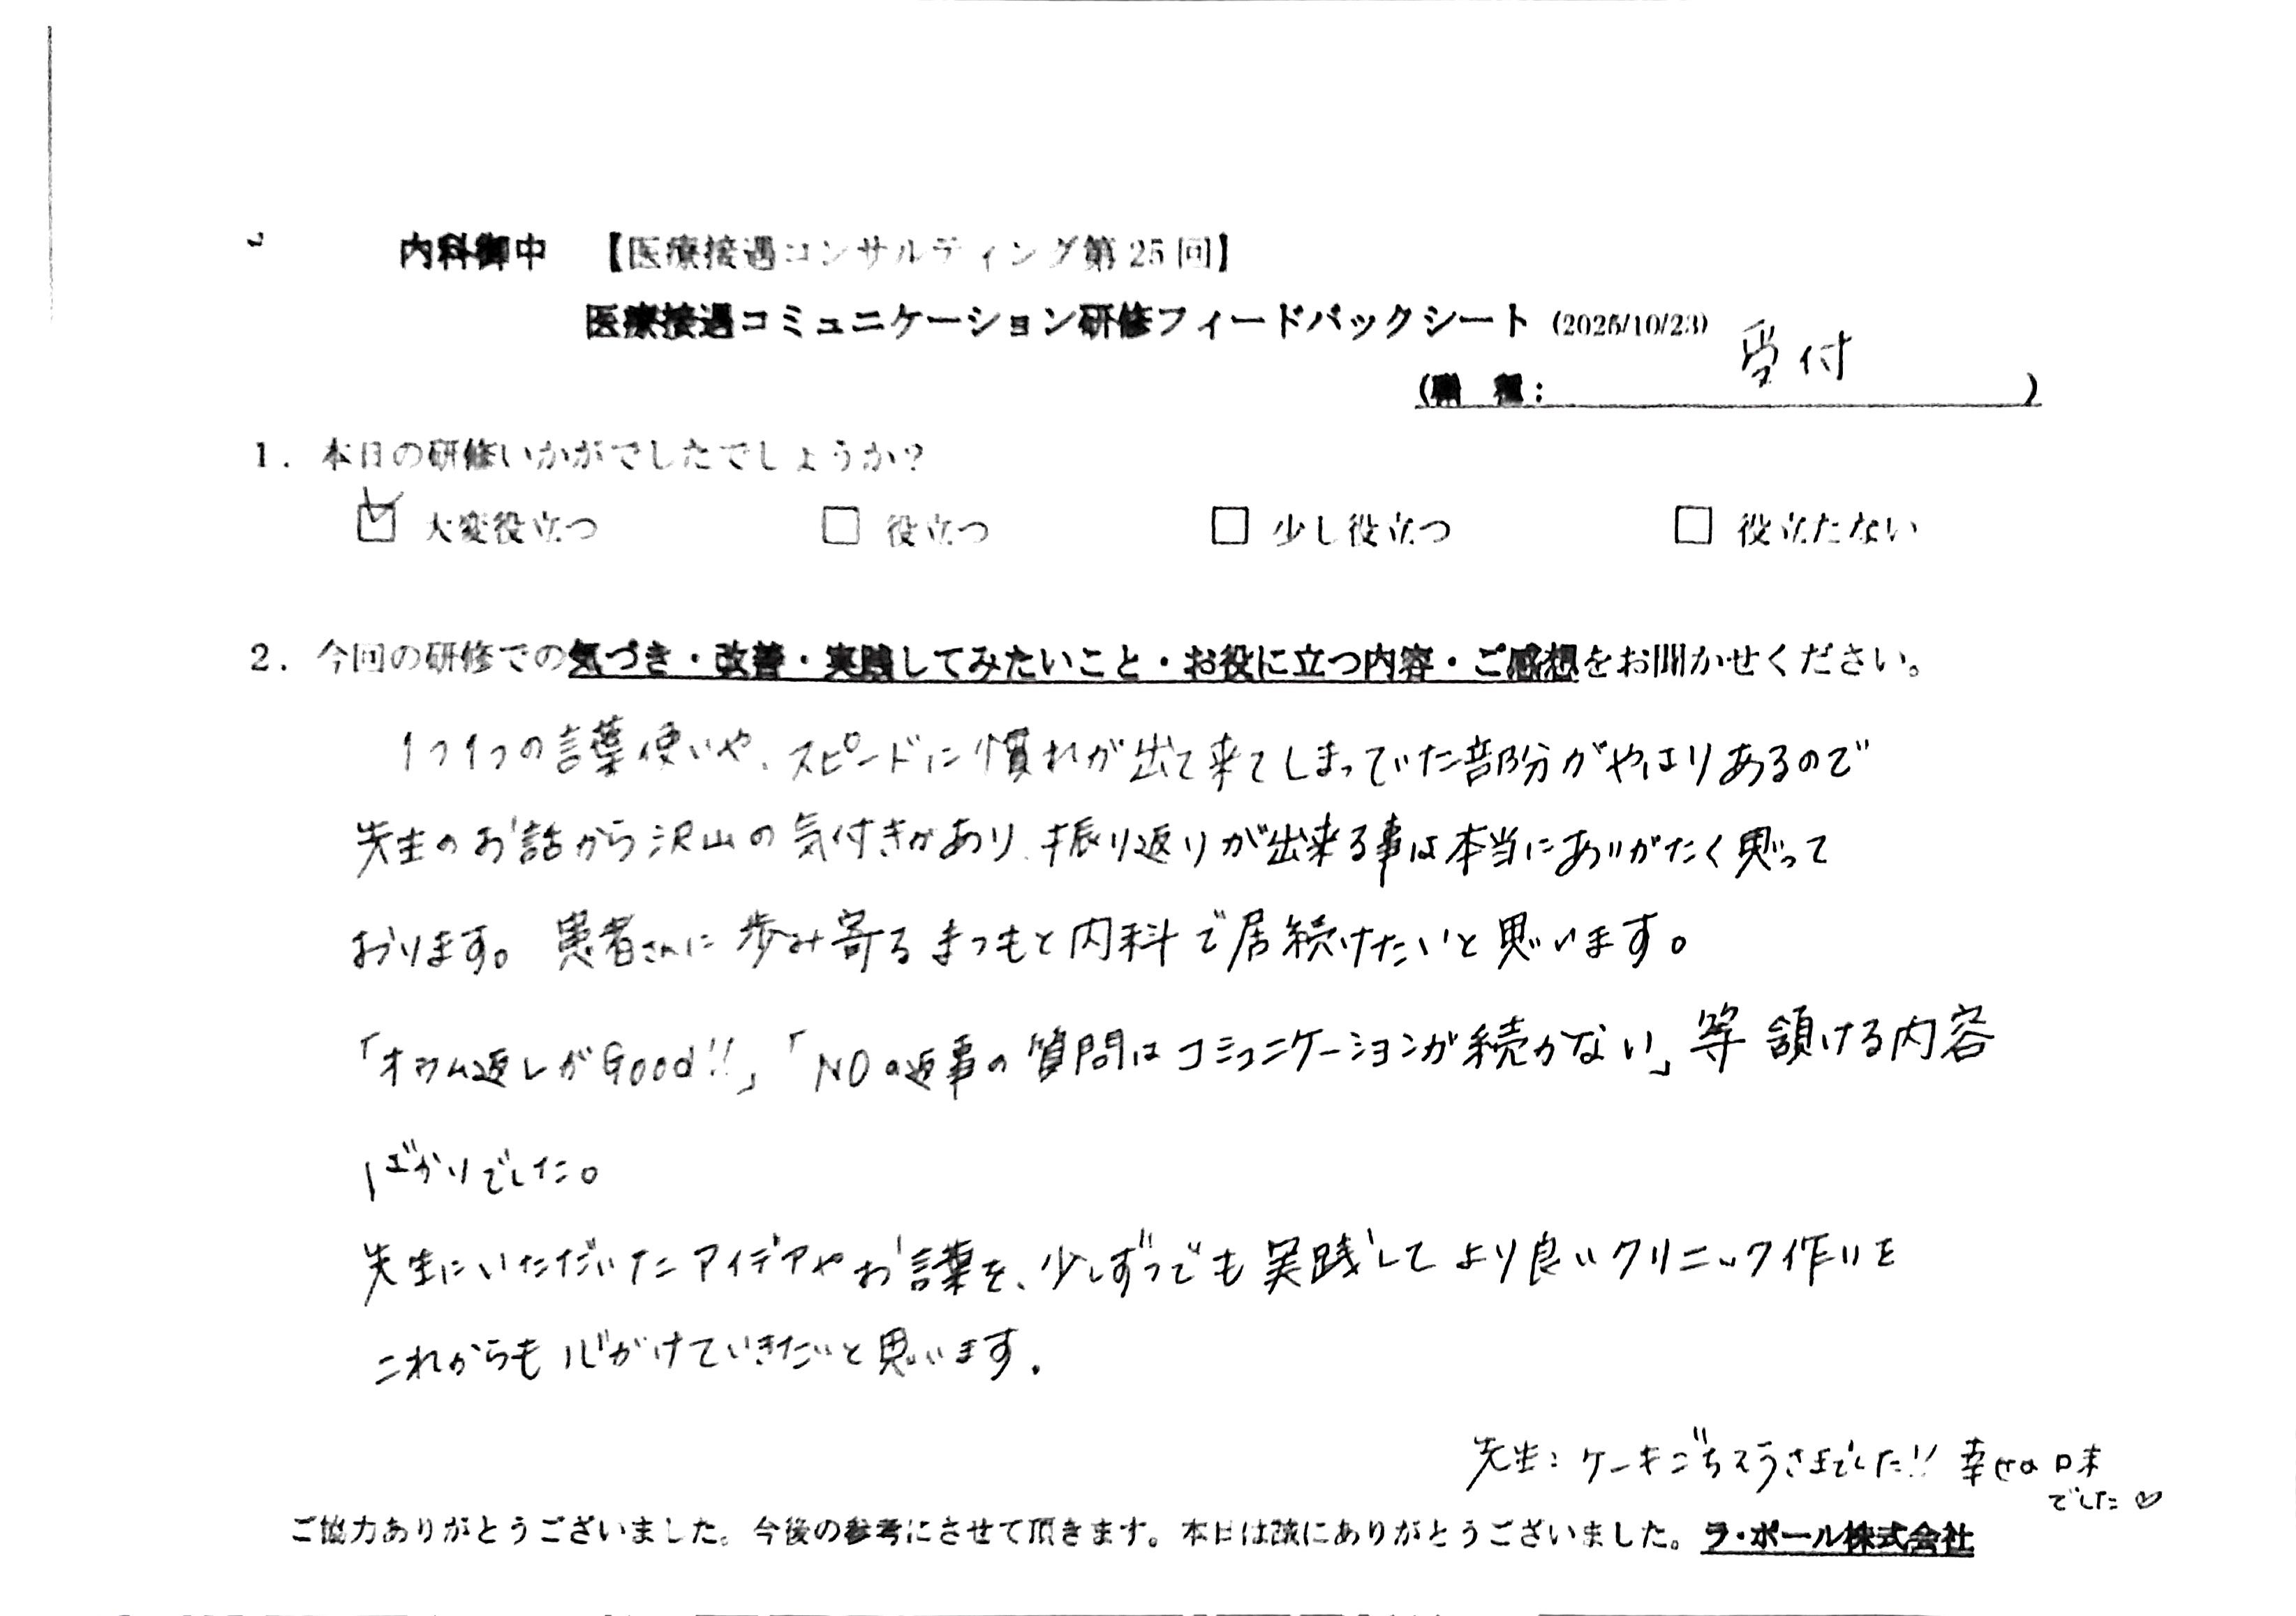 内科御中 【医療接遇コンサルティング第25回】
医療接遇コミュニケーション研修フィードバックシート (2025/10/23)
(職 種: 受付 )
1. 本日の研修いかがでしたでしょうか?
☑ 大変役立つ □ 役立つ □ 少し役立つ □ 役立たない
2. 今回の研修での気づき・改善・実践してみたいこと・お役に立つ内容・ご感想をお聞かせください。
1つ1つの言葉使いや、スピードに慣れが出て来てしまっていた部分がやはりあるので
先生のお話から沢山の気付きがあり、振り返りが出来る事は本当にありがたく思って
おります。患者さんに歩み寄るまつもと内科で居続けたいと思います。
「オウム返しがGood!!」「NOの返事の質問はコミュニケーションが続かない」等 頷ける内容
ばかりでした。
先生にいただいたアイデアやお言葉を、少しずつでも実践してより良いクリニック作りを
これからも心がけていきたいと思います.
先生:ケーキごちそうさまでした!! 幸せの味
でした♡
ご協力ありがとうございました。今後の参考にさせて頂きます。本日は誠にありがとうございました。ラ・ポール株式会社